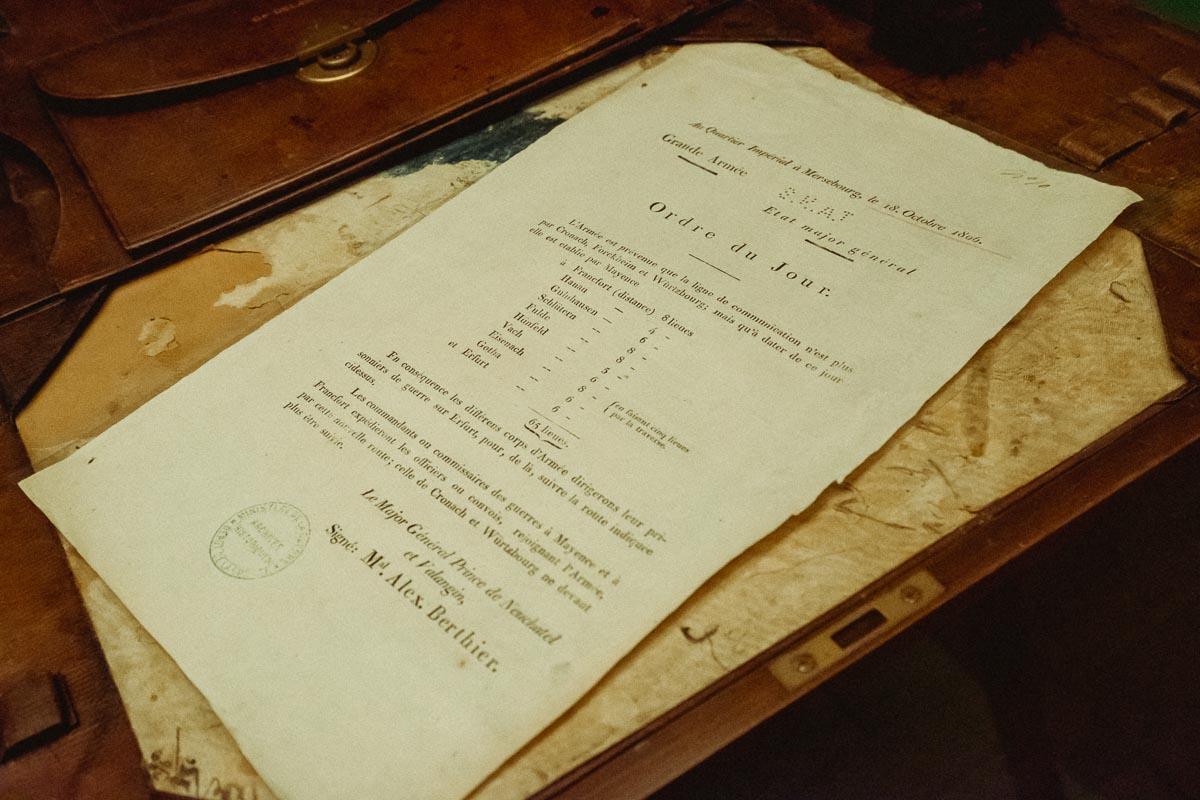 Au Quartier Impérial à Mersebourg, le 18. Octobre 1806.
Grande Armée
Etat major général
Ordre du Jour.
L'Armée est prévenue que la ligne de communication n'est plus
par Cronach, Forckheim et Würtzbourg; mais qu'à dater de ce jour
elle est établie par Mayence
à Francfort (distance) 8 lieues
Hanau — 4 -
— 6 -
Schlütern — 8 -
Fulde — 5 -
Hunfeld — 6 -
Vach — 8 -
Eisenach — 6 -
Gotha — 6 -
et Erfurt
(en faisant cinq lieues
par la traverse.
65 lieues.
En conséquence les différens corps d'Armée dirigerons leur pri-
sonniers de guerre sur Erfurt, pour, de là, suivre la route indiquée
cidessus.
Les commandants ou commissaires des guerres à Mayence et à
Francfort expédieront les officiers ou convois, rejoignant l'Armée,
par cette nouvelle route; celle de Cronach et Würtzbourg ne devant
plus être suivie.
Le Major Général Prince de Neuchatel
et Valangin,
Signé: Mal. Alex. Berthier.